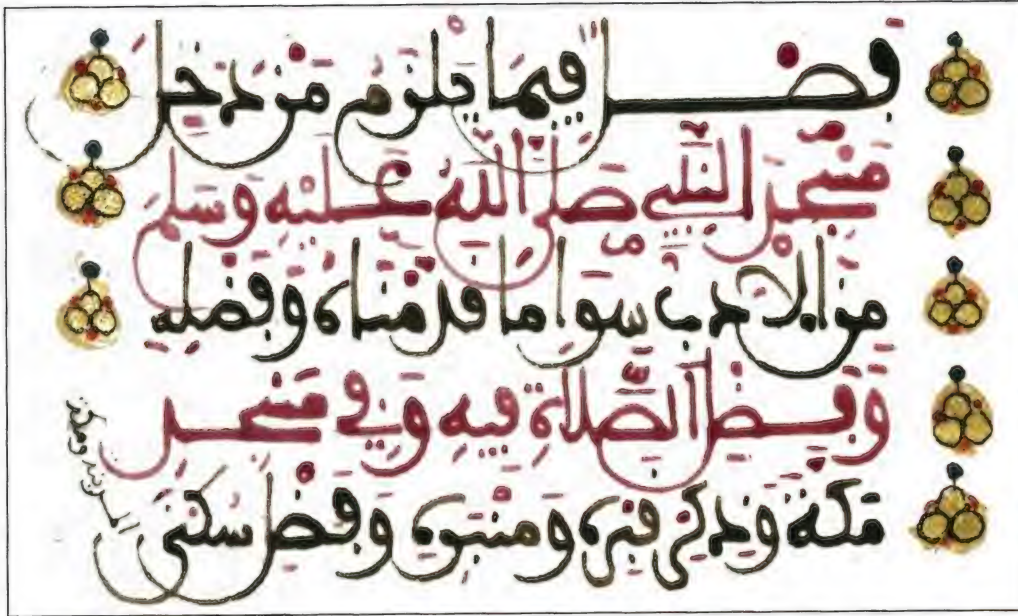 فَصْل فِيمَا يَلْزَمُ مَنْ دَخَلَ
مَسْجِدَ النَّبِيِّ صَلَّى اللَّهُ عَلَيْهِ وَسَلَّمَ
مِنَ الْأَدَبِ سِوَا مَا قَدَّمْنَاهُ وَفَضْلِهِ
وَفَضْلِ الصَّلَاةِ فِيهِ وَفِي مَسْجِدِ
مَكَّةَ وَذِكْرِ قَبْرِهِ وَمِنْبَرِهِ وَفَضْلِ سُكْنَى
المدينة ومكة